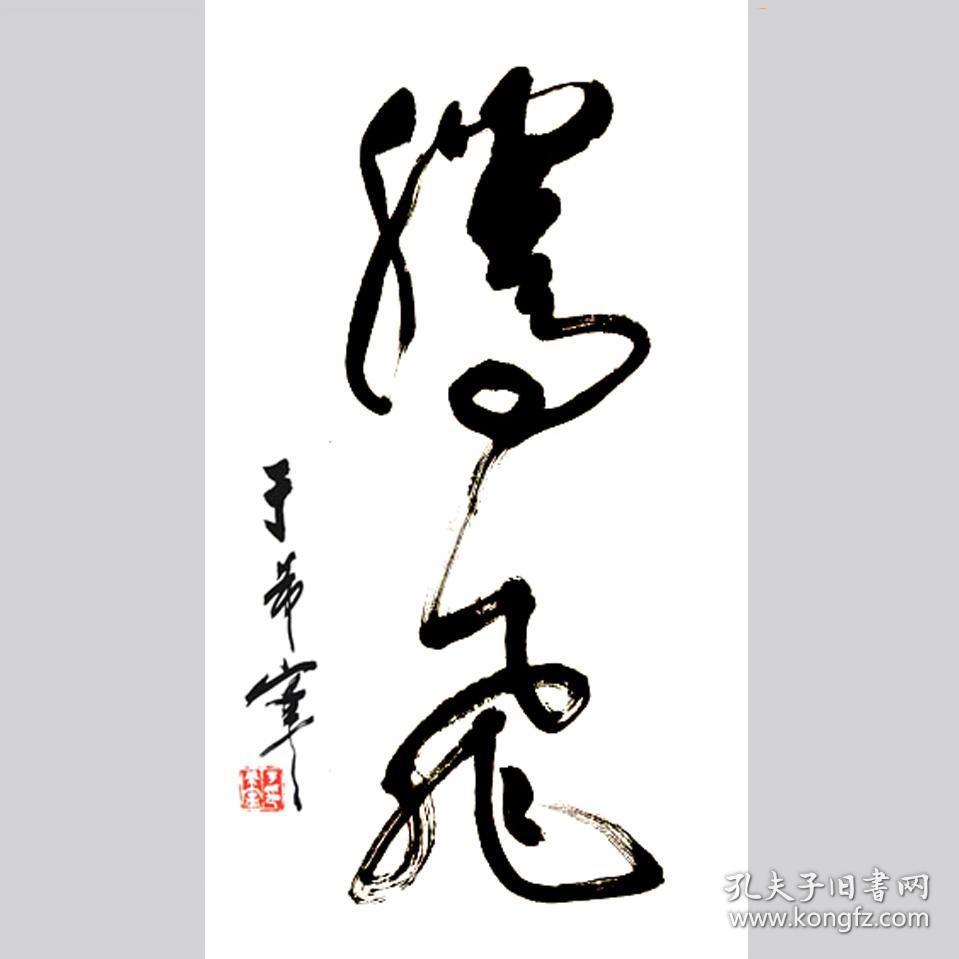 腾飞
于希宁
孔夫子旧書网
www.kongfz.com